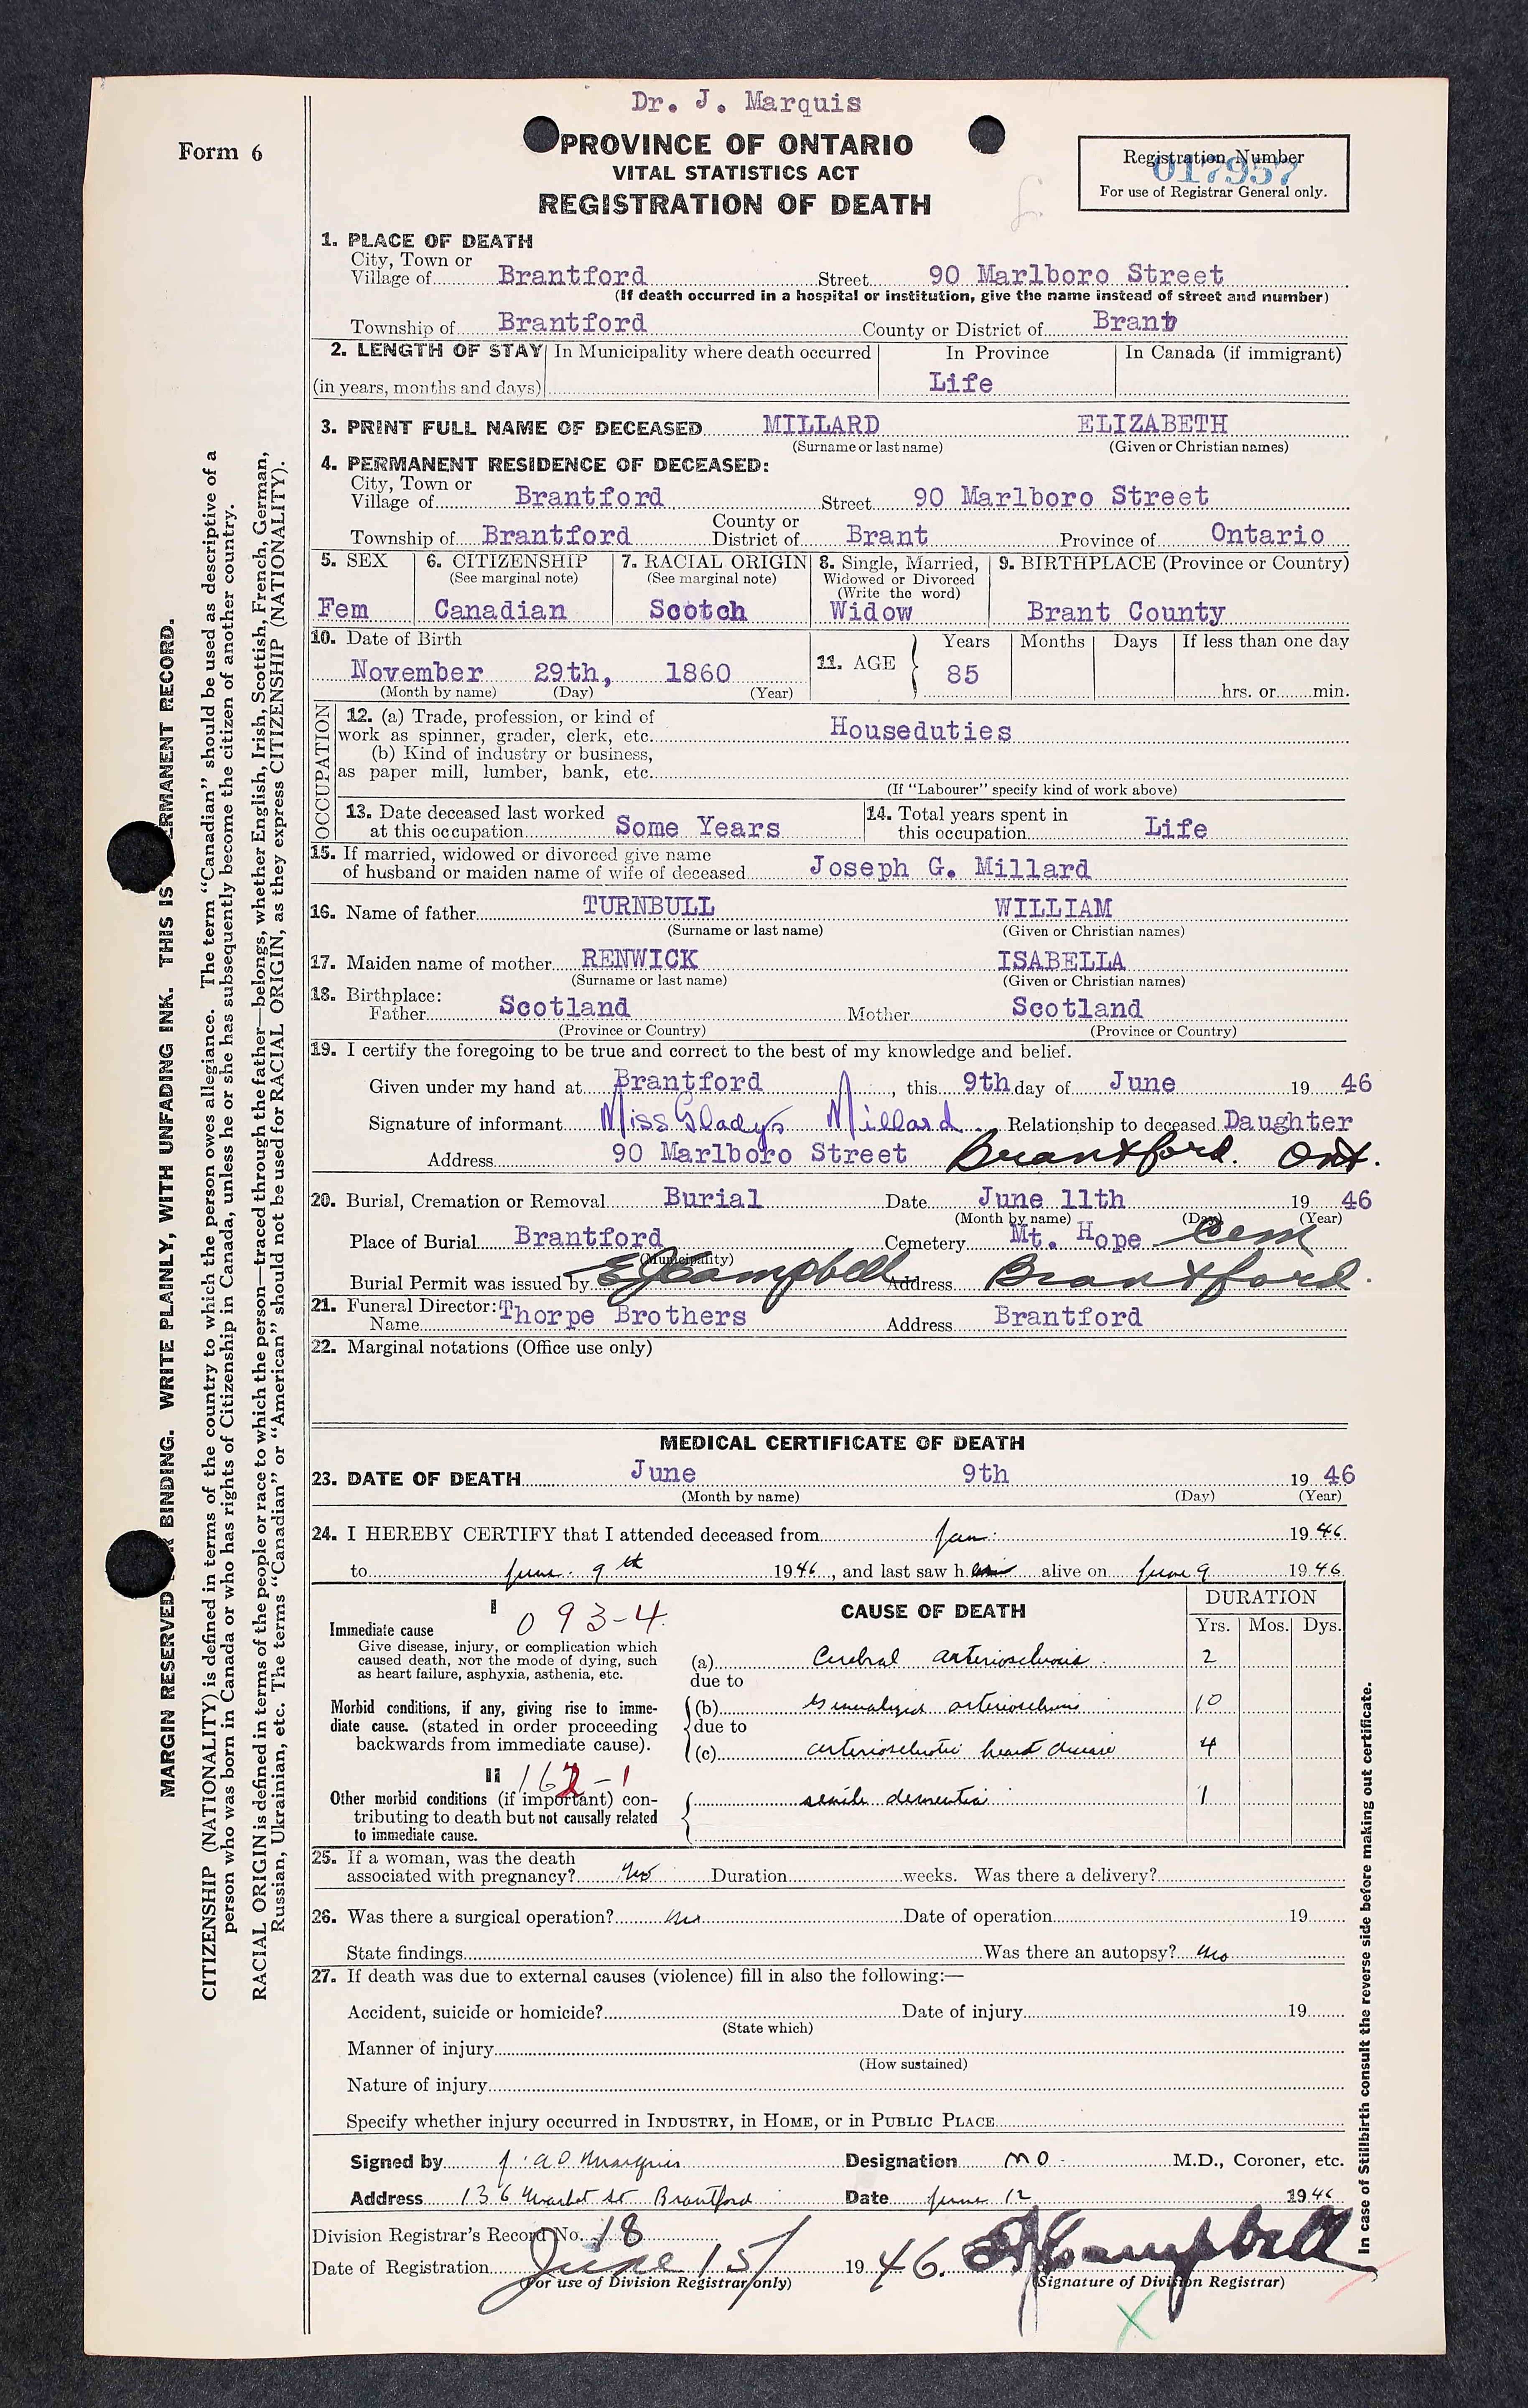 Dr. J. Marquis
Form 6
PROVINCE OF ONTARIO
VITAL STATISTICS ACT
REGISTRATION OF DEATH
Registration Number
017957
For use of Registrar General only.
1. PLACE OF DEATH
City, Town or
Village of Brantford Street 90 Marlboro Street
(If death occurred in a hospital or institution, give the name instead of street and number)
Township of Brantford County or District of Brant
2. LENGTH OF STAY In Municipality where death occurred In Province In Canada (if immigrant)
(in years, months and days) Life
3. PRINT FULL NAME OF DECEASED MILLARD ELIZABETH
(Surname or last name) (Given or Christian names)
4. PERMANENT RESIDENCE OF DECEASED:
City, Town or
Village of Brantford Street 90 Marlboro Street
Township of Brantford County or District of Brant Province of Ontario
5. SEX 6. CITIZENSHIP 7. RACIAL ORIGIN 8. Single, Married, 9. BIRTHPLACE (Province or Country)
(See marginal note) (See marginal note) Widowed or Divorced
(Write the word)
Fem Canadian Scotch Widow Brant County
10. Date of Birth 11. AGE Years Months Days If less than one day
November 29th, 1860 85
(Month by name) (Day) (Year) hrs. or min.
OCCUPATION
12. (a) Trade, profession, or kind of
work as spinner, grader, clerk, etc. Houseduties
(b) Kind of industry or business,
as paper mill, lumber, bank, etc.
(If "Labourer" specify kind of work above)
13. Date deceased last worked 14. Total years spent in
at this occupation Some Years this occupation Life
15. If married, widowed or divorced give name
of husband or maiden name of wife of deceased Joseph G. Millard
16. Name of father TURNBULL WILLIAM
(Surname or last name) (Given or Christian names)
17. Maiden name of mother RENWICK ISABELLA
(Surname or last name) (Given or Christian names)
18. Birthplace:
Father Scotland Mother Scotland
(Province or Country) (Province or Country)
19. I certify the foregoing to be true and correct to the best of my knowledge and belief.
Given under my hand at Brantford, this 9th day of June 19 46
Signature of informant Miss Gladys Millard Relationship to deceased Daughter
Address 90 Marlboro Street Brantford. Ont.
20. Burial, Cremation or Removal Burial Date June 11th 19 46
(Month by name) (Day) (Year)
Place of Burial Brantford Cemetery Mt. Hope Cem
(Municipality)
Burial Permit was issued by E J Campbell Address Brantford.
21. Funeral Director:
Name Thorpe Brothers Address Brantford
22. Marginal notations (Office use only)
MEDICAL CERTIFICATE OF DEATH
23. DATE OF DEATH June 9th 19 46
(Month by name) (Day) (Year)
24. I HEREBY CERTIFY that I attended deceased from Jan. 19 46
to June 9th 19 46, and last saw h alive on June 9 19 46
I 093-4
CAUSE OF DEATH DURATION
Yrs. Mos. Dys.
Immediate cause
Give disease, injury, or complication which
caused death, NOT the mode of dying, such
as heart failure, asphyxia, asthenia, etc.
(a) Cerebral arteriosclerosis 2
due to
Morbid conditions, if any, giving rise to imme-
diate cause. (stated in order proceeding
backwards from immediate cause).
(b) Generalized arteriosclerosis 10
due to
(c) arteriosclerotic heart disease 4
II 162-1
Other morbid conditions (if important) con-
tributing to death but not causally related
to immediate cause.
senile dementia 1
25. If a woman, was the death
associated with pregnancy? No Duration weeks. Was there a delivery?
26. Was there a surgical operation? No Date of operation 19
State findings Was there an autopsy? No
27. If death was due to external causes (violence) fill in also the following:—
Accident, suicide or homicide? Date of injury 19
(State which)
Manner of injury
(How sustained)
Nature of injury
Specify whether injury occurred in INDUSTRY, in HOME, or in PUBLIC PLACE
Signed by J. A D Marquis Designation M D M.D., Coroner, etc.
Address 136 Market St Brantford Date June 12 19 46
Division Registrar's Record No. 18
Date of Registration June 15/ 19 46. E J Campbell
(For use of Division Registrar only) (Signature of Division Registrar)
MARGIN RESERVED BINDING. WRITE PLAINLY, WITH UNFADING INK. THIS IS ERMANENT RECORD.
CITIZENSHIP (NATIONALITY) is defined in terms of the country to which the person owes allegiance. The term "Canadian" should be used as descriptive of a
person who was born in Canada or who has rights of Citizenship in Canada, unless he or she has subsequently become the citizen of another country.
RACIAL ORIGIN is defined in terms of the people or race to which the person—traced through the father—belongs, whether English, Irish, Scottish, French, German,
Russian, Ukrainian, etc. The terms "Canadian" or "American" should not be used for RACIAL ORIGIN, as they express CITIZENSHIP (NATIONALITY).
In case of Stillbirth consult the reverse side before making out certificate.